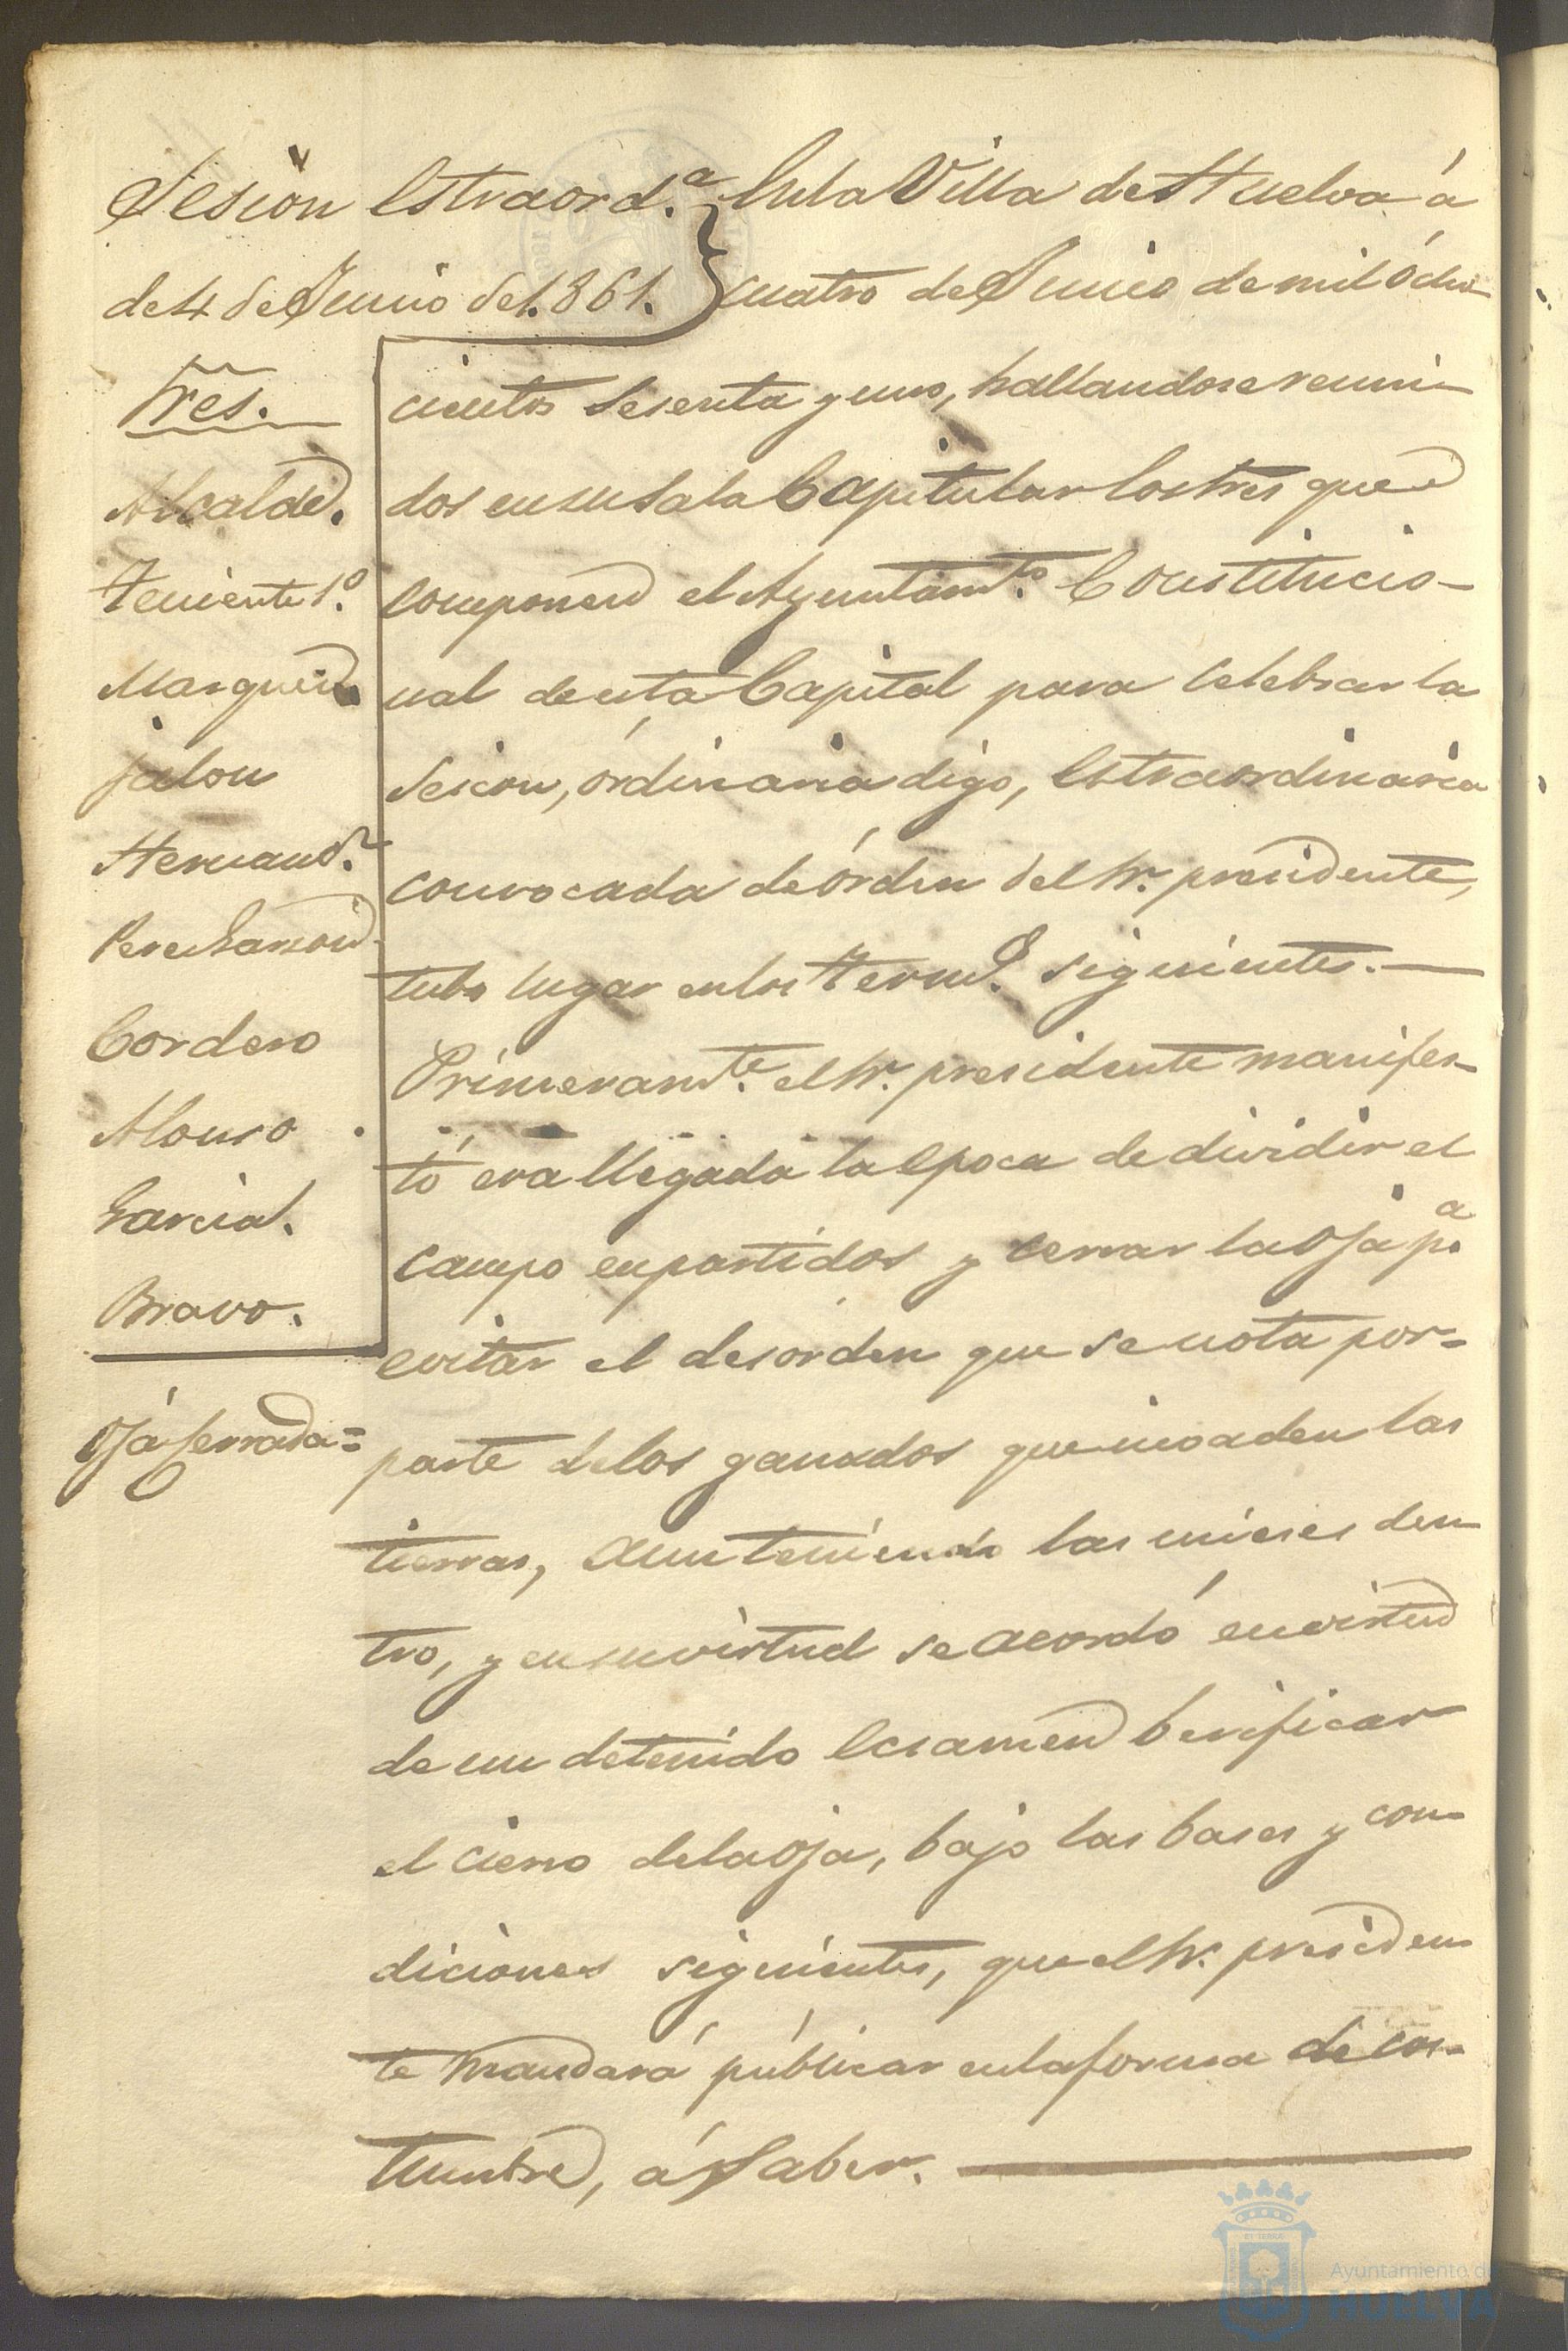 Sesion estraord.ª
de 4 de Junio de 1.861.
Sres.
Alcalde.
Teniente 1º.
Marquez
jalon
Hernand.z
Perez Garzon
Cordero
Alonso
Garcia.
Bravo.
Oja serrada=
En la Villa de Huelva á
cuatro de Junio de mil ócho
cientos sesenta y uno, hallandose reuni-
dos en su Sala Capitular los Sres que
componen el Ayuntamto. Constitucio-
nal de esta Capital para celebrar la
sesion, órdinaria digo, estraordinaria
convocada de órden del Sr. presidente,
tubo lugar en los Termos. siguientes.—
Primeramte. el Sr. presidente manifes-
tó era llegada la epoca de dividir el
campo en partidos y cerrar la oja pª
evitar el desorden que se nota por-
parte de los ganados que invaden las
tierras, aun teniendo las mieses den-
tro, y en su virtud se acordó en virtud
de un detenido ecsamen berificar
el cierro de la oja, bajo las bases y con-
diciones siguientes, que el Sr. presiden-
te mandará públicar en la forma de cos-
tumbre, á Saber.—
Ayuntamiento de
HUELVA